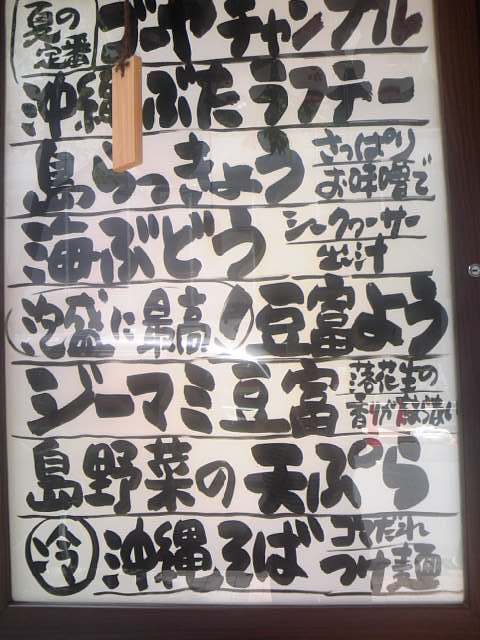 夏の定番 ゴーヤチャンプル
沖縄ぶたラフテー
島らっきょう さっぱりお味噌で
海ぶどう シークヮーサー出し汁
泡盛に最高! 豆富よう
ジーマミ豆富 落花生の香りがたまらない
島野菜の天ぷら
冷 沖縄そば ゴマだれつけ麺